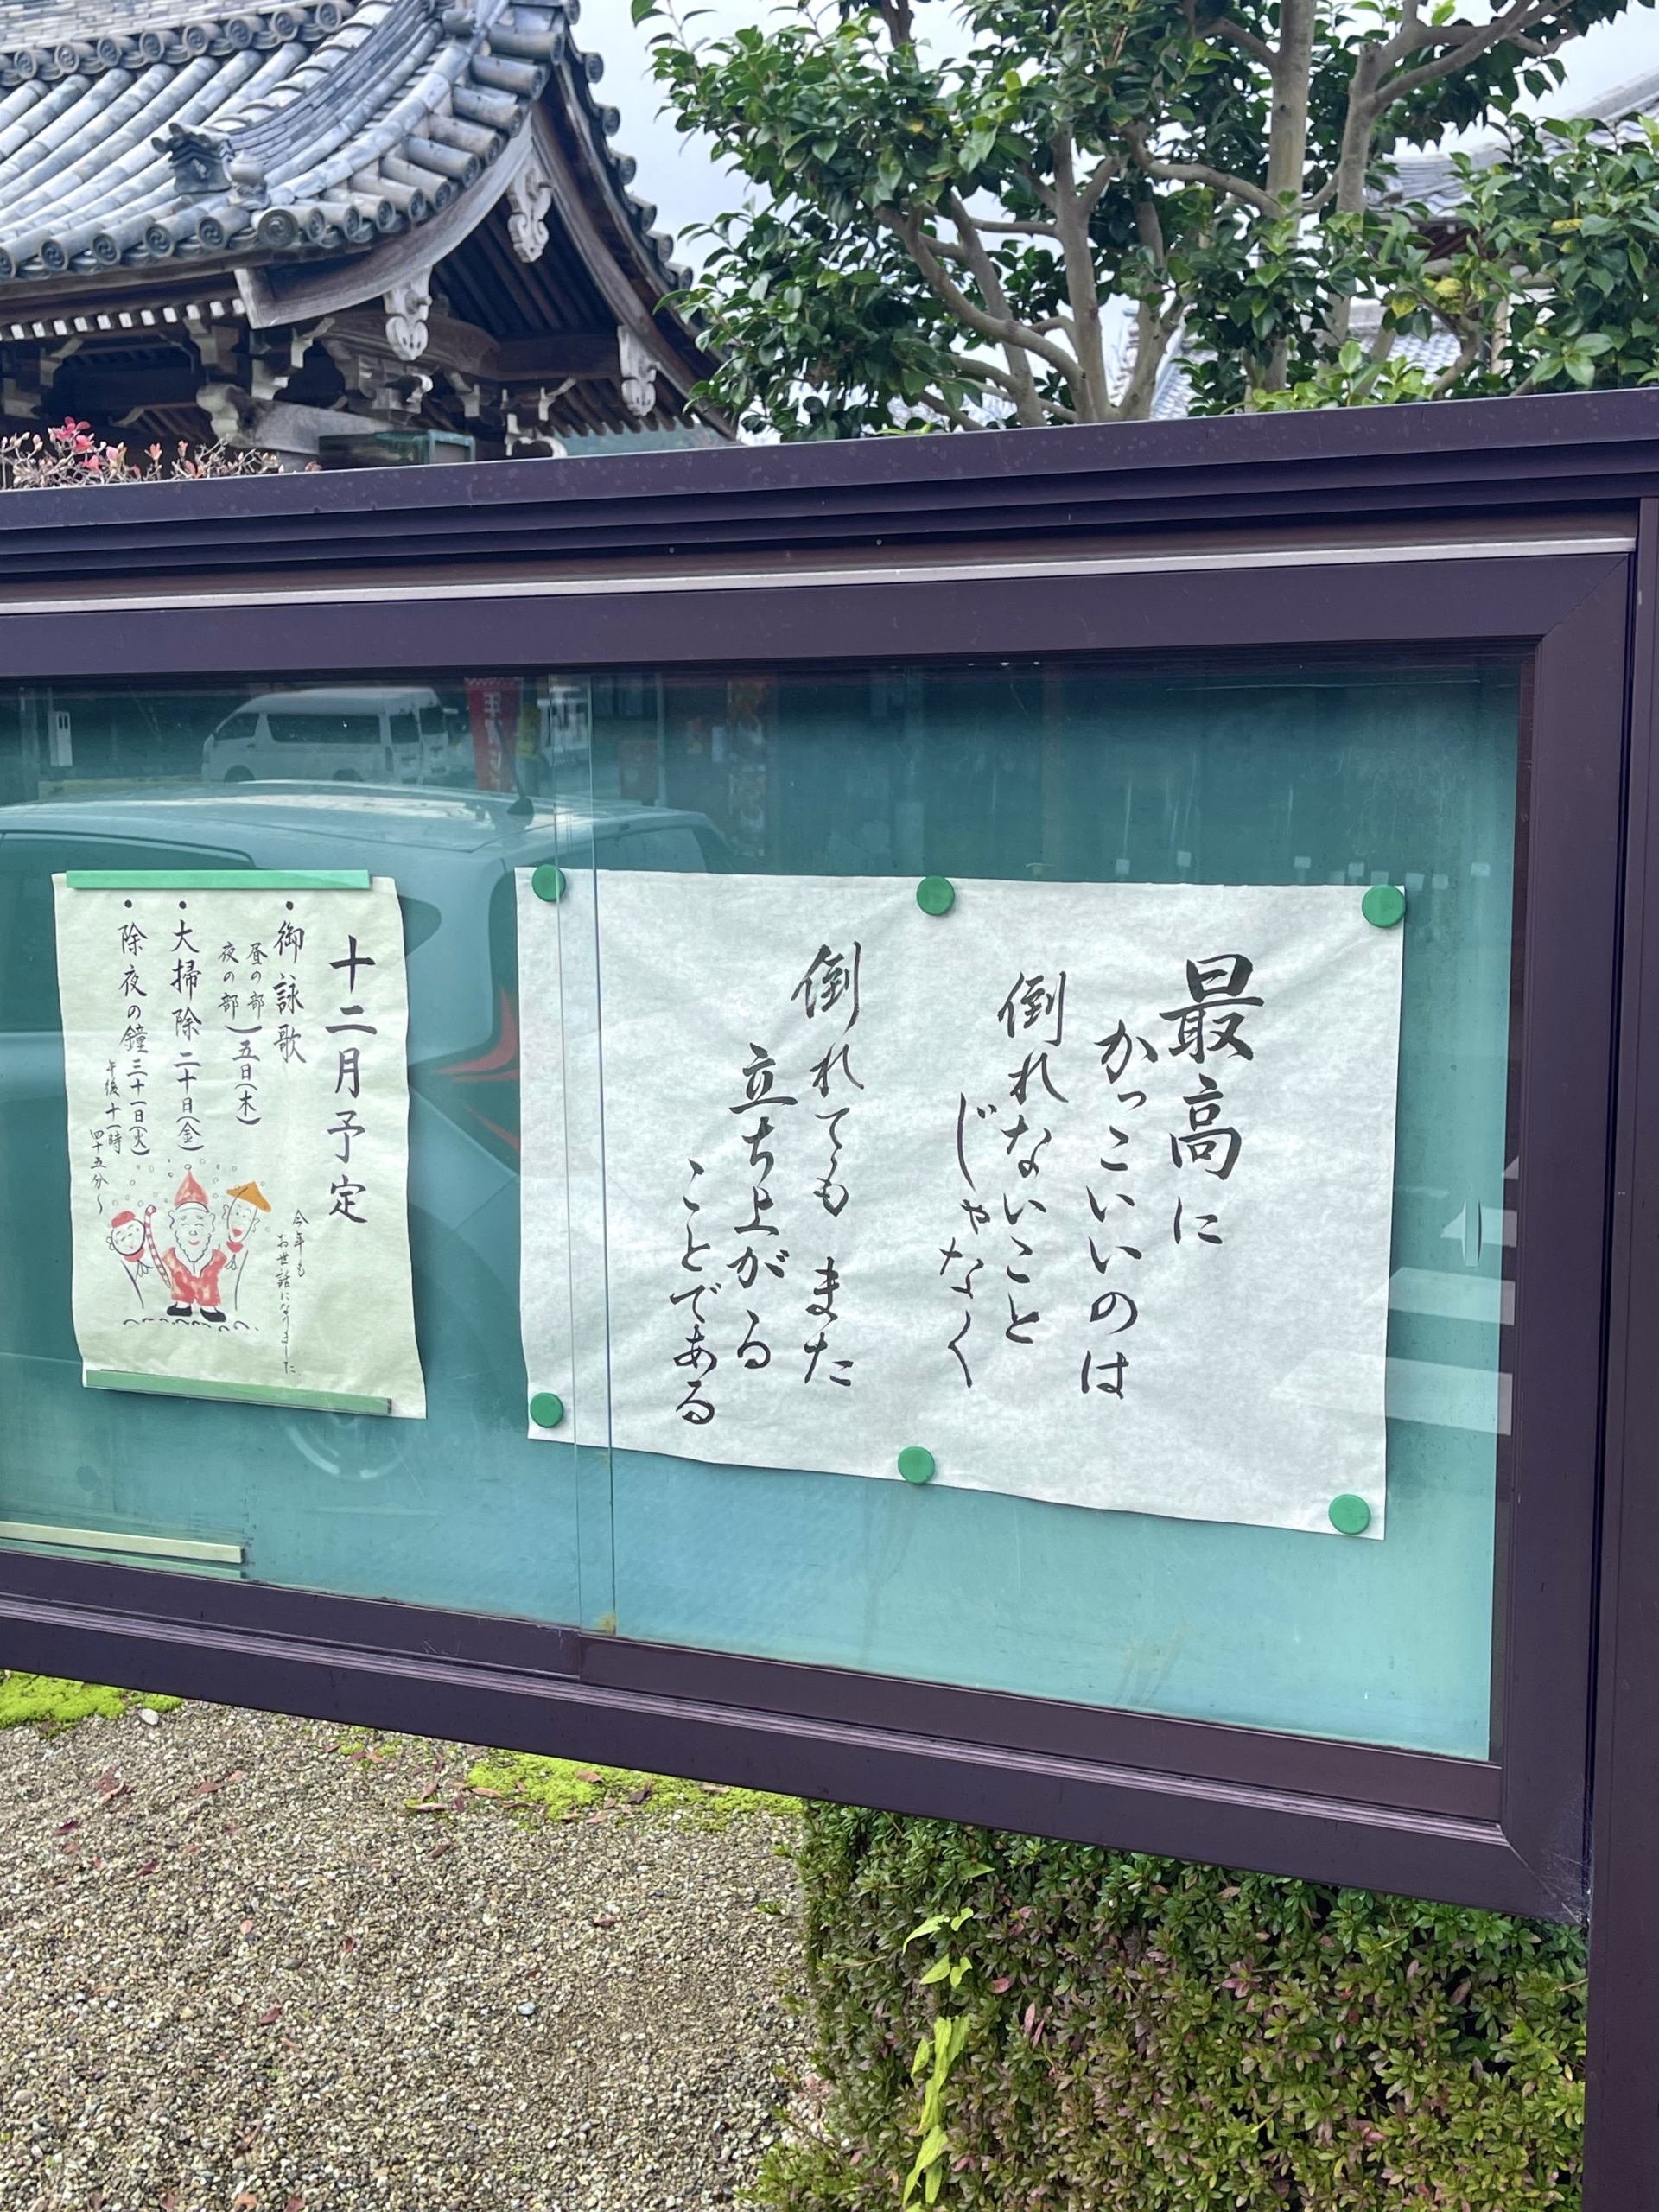 最高に
かっこいいのは
倒れないこと
じゃなく
倒れても また
立ち上がる
ことである
十二月予定
・御詠歌
昼の部
夜の部
)五日(木)
・大掃除 二十日(金)
・除夜の鐘 三十一日(火)
午後十一時
四十五分〜
今年も
お世話になりました